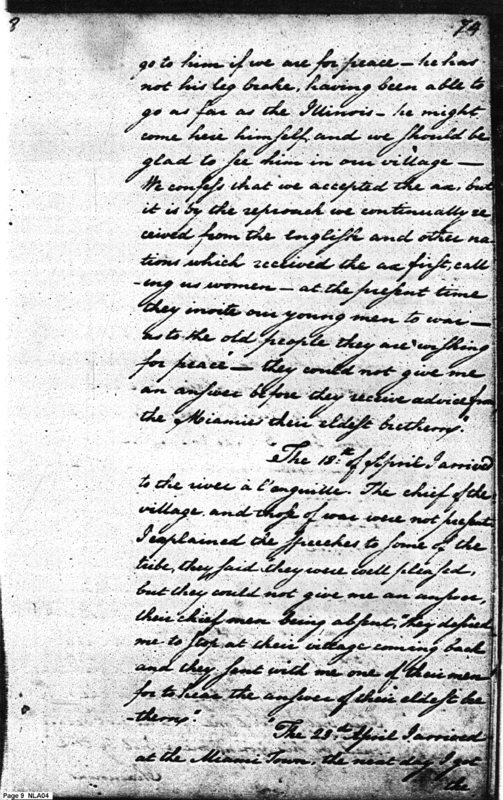 8 74
go to him if we are for peace — he has
not his leg broke, having been able to
go as far as the Illinois — he might
come here himself, and we should be
glad to see him in our village —
We confess that we accepted the ax, but
it is by the reproach we continually re
ceived from the english and other na
tions which received the ax first, call
-ing us women — at the present time
they invite our young men to war —
as to the old people they are wishing
for peace" — they could not give me
an answer before they receive advice from
the Miamies their eldest brethern."
"The 18th of April I arrived
to the river a l'anguille. The chief of the
village and those of war were not present
I explained the speeches to some of the
tribe, they said "they were well pleased,
but they could not give me an answer,
their chief men being absent, they desired
me to stop at their village coming back
and they sent with me one of their men
for to hear the answer of their eldest bre
-thern".
"The 23th April I arrived
at the Miami Town, the next day I got
the
Page 9 NLA04